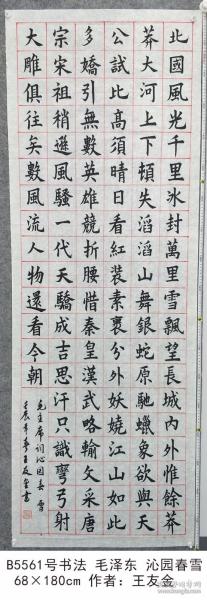 北國風光千里冰封萬里雪飄望長城內外惟餘莽
莽大河上下頓失滔滔山舞銀蛇原馳蠟象欲與天
公試比高須晴日看紅裝素裹分外妖嬈江山如此
多嬌引無數英雄競折腰惜秦皇漢武略輸文采唐
宗宋祖稍遜風騷一代天驕成吉思汗只識彎弓射
大雕俱往矣數風流人物還看今朝
毛主席词沁园春 雪
壬辰年夏王友金書
B5561号书法 毛泽东 沁园春雪
68×180cm 作者：王友金